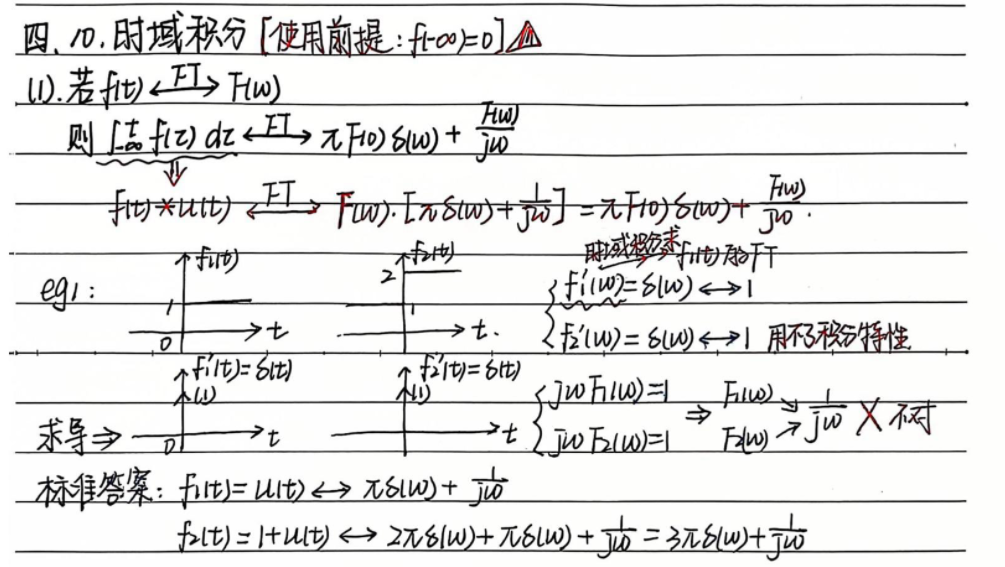 四、10.时域积分[使用前提:f(-∞)=0]
(1).若f(t) ←FT→ F(ω)
则 ∫_{-∞}^{t} f(τ) dτ ←FT→ πF(0)δ(ω)+F(ω)/jω
⇓
f(t)*u(t) ←FT→ F(ω)·[πδ(ω)+1/jω]=πF(0)δ(ω)+F(ω)/jω.
eg1: f₁(t) 1 0 t
f₂(t) 2 1 t.
时域积分求f₁(t)的FT
{f₁'(ω)=δ(ω)↔1
f₂'(ω)=δ(ω)↔1 用不了积分特性
求导⇒ f₁'(t)=δ(t) (1) 0 t
f₂'(t)=δ(t) (1) t
{jωF₁(ω)=1
jωF₂(ω)=1 ⇒ F₁(ω) F₂(ω) → 1/jω × 不对
标准答案: f₁(t)=u(t)↔πδ(ω)+1/jω
f₂(t)=1+u(t)↔2πδ(ω)+πδ(ω)+1/jω=3πδ(ω)+1/jω